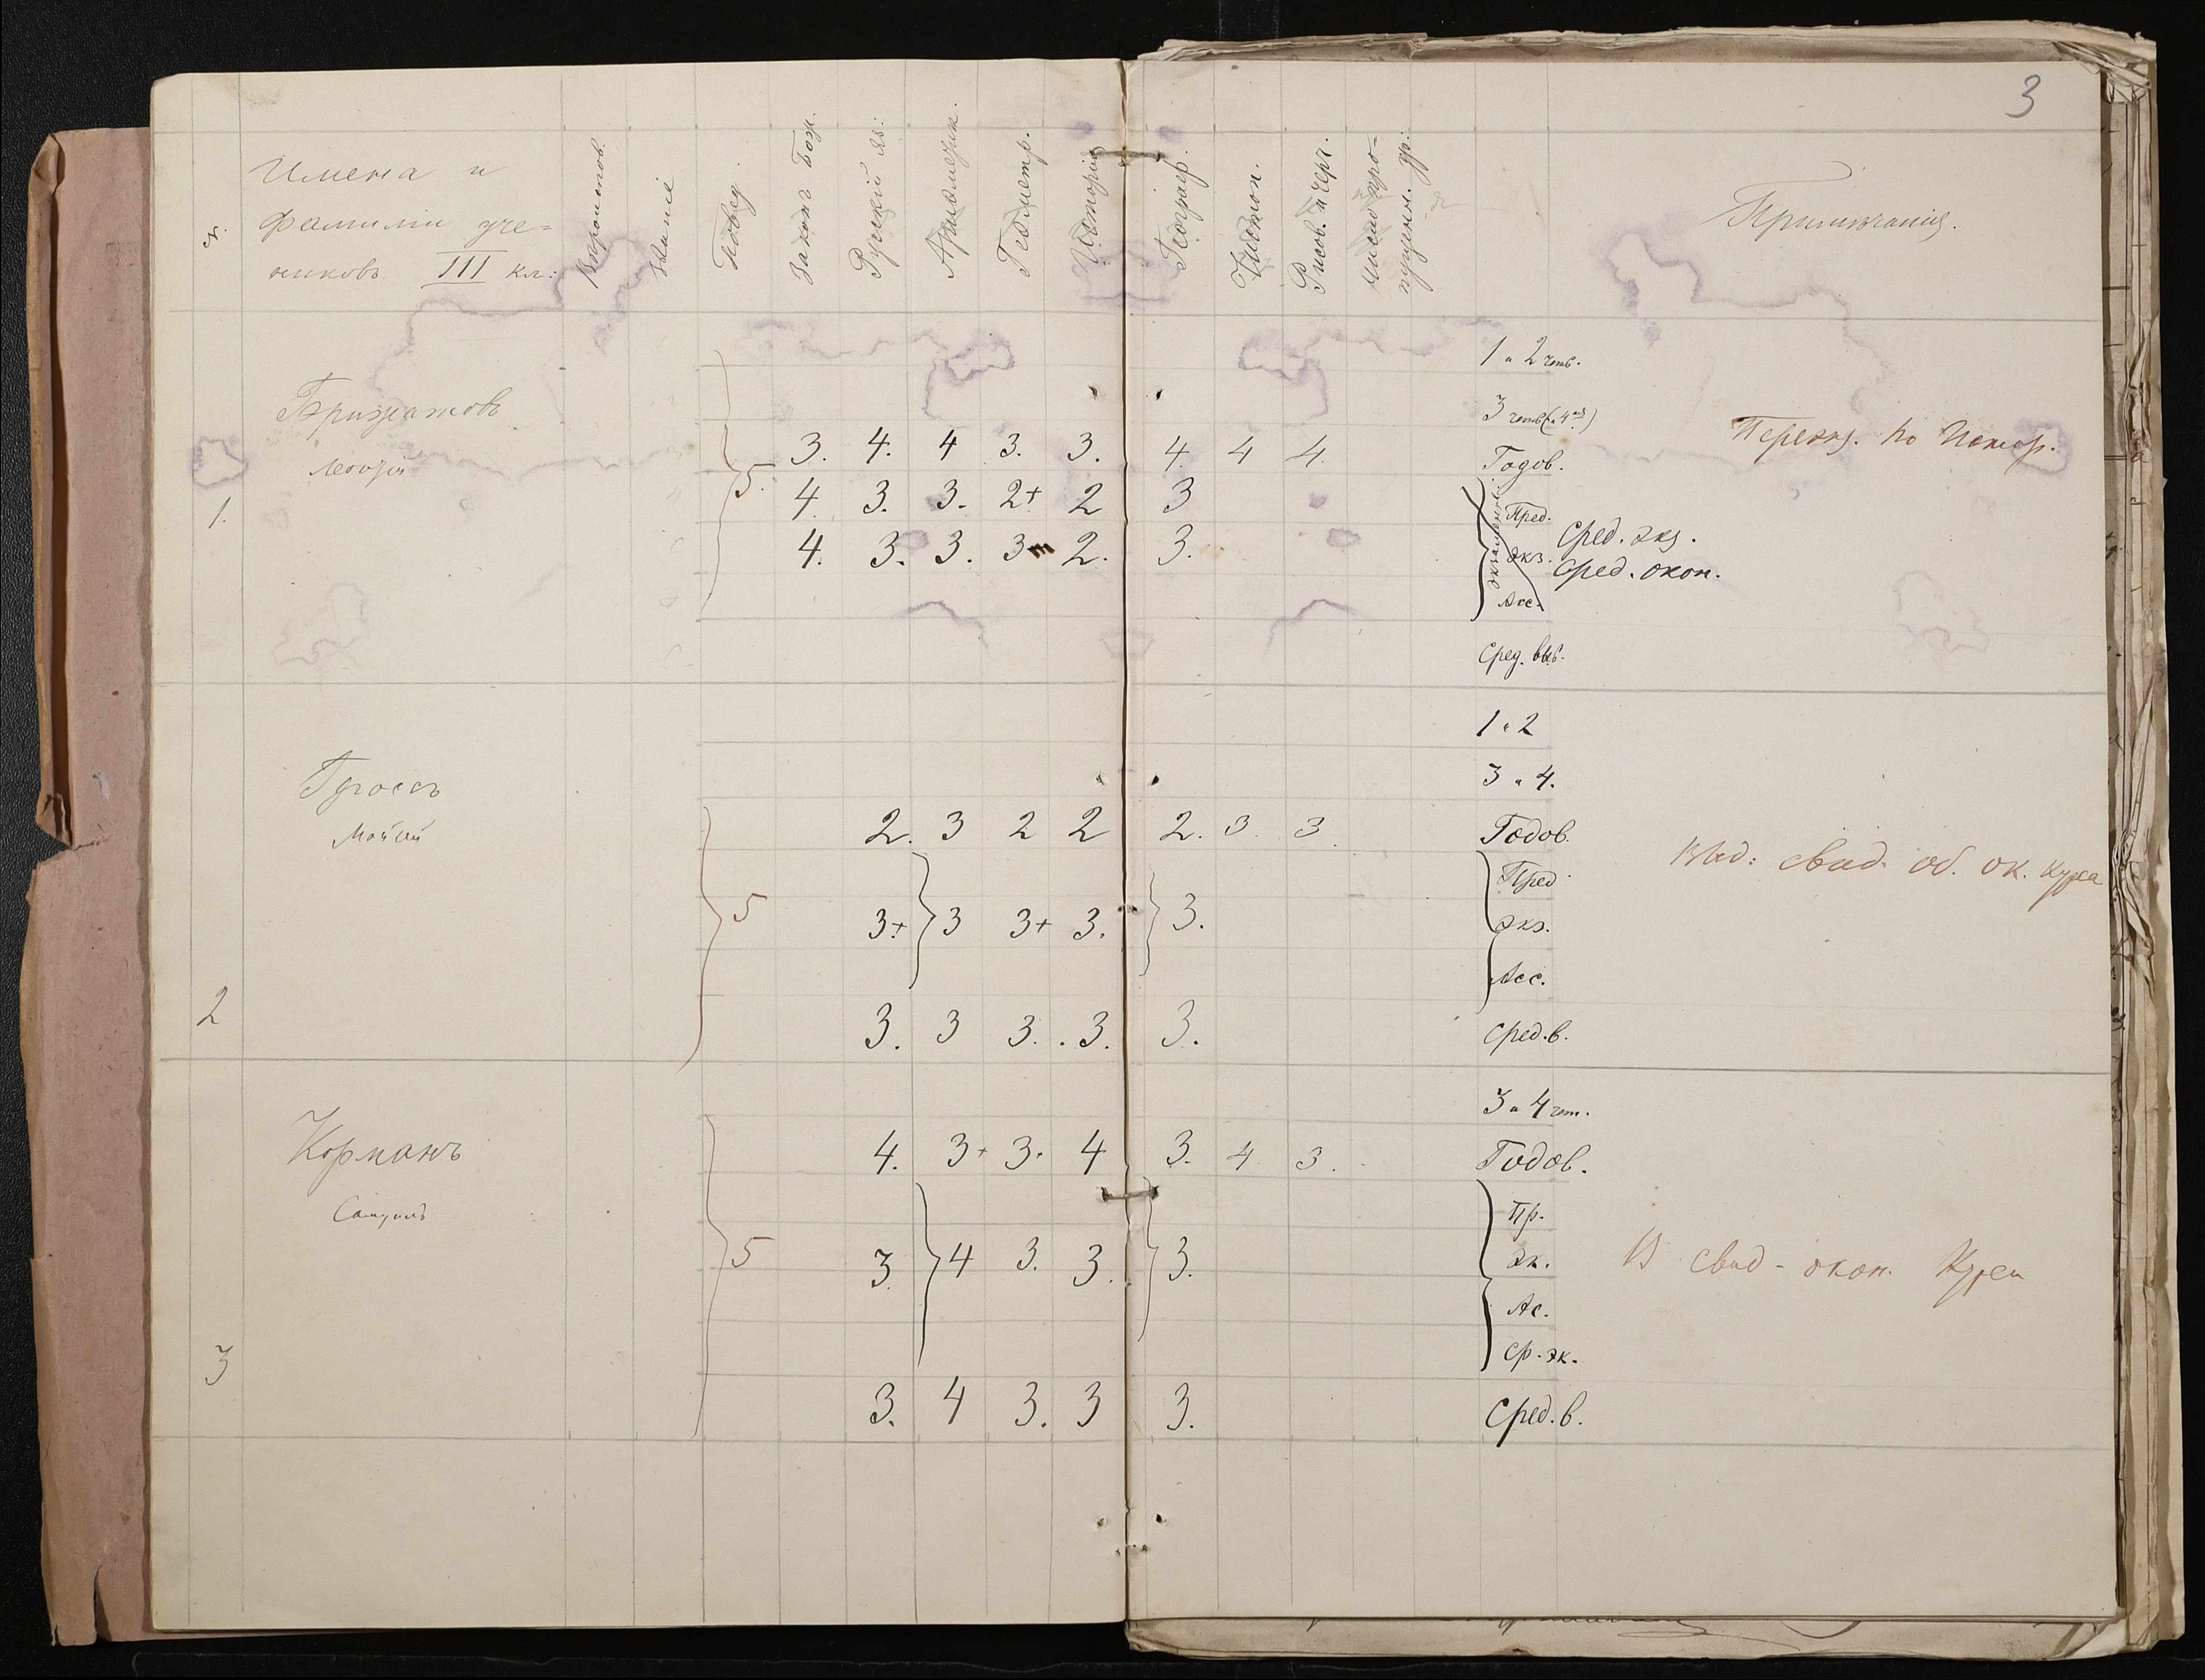 3
Имена и
фамиліи уче-
никовъ III кл:
Вѣроиспов.
Званіе
Повед.
Законъ Бож.
Русскій яз:
Ариѳметик.
Геометр.
Исторія
Географ.
Чистоп.
Рисов. и черч.
число про-
пущенн. ур.:
Примѣчанія.
1 и 2 четв.
3 четв (и 4ая)
3. 4. 4 3. 3. 4. 4 4. Годов.
5. 4. 3. 3. 2+ 2 3 Пред.
4. 3. 3. 3 2. 3. экз.
Асс.
Сред. экз.
Сред. окон.
Сред. выв.
Переэкз. по Истор.
1.
1 и 2
3 и 4.
Гроссъ
2. 3 2 2 2. 3. 3. Годов.
Пред.
5 3+ 3 3+ 3. 3. экз.
Асс.
2 3. 3 3. 3. 3. Сред. в.
Выд: свид. об. ок. курса
3 и 4 чет.
Корманъ
4. 3+ 3. 4 3. 4 3. Годов.
Самуилъ
Пр.
5 3. 4 3. 3. 3. эк.
Ас.
Ср. эк.
3 3. 4 3. 3 3. Сред. в.
В свид - окон. Курса